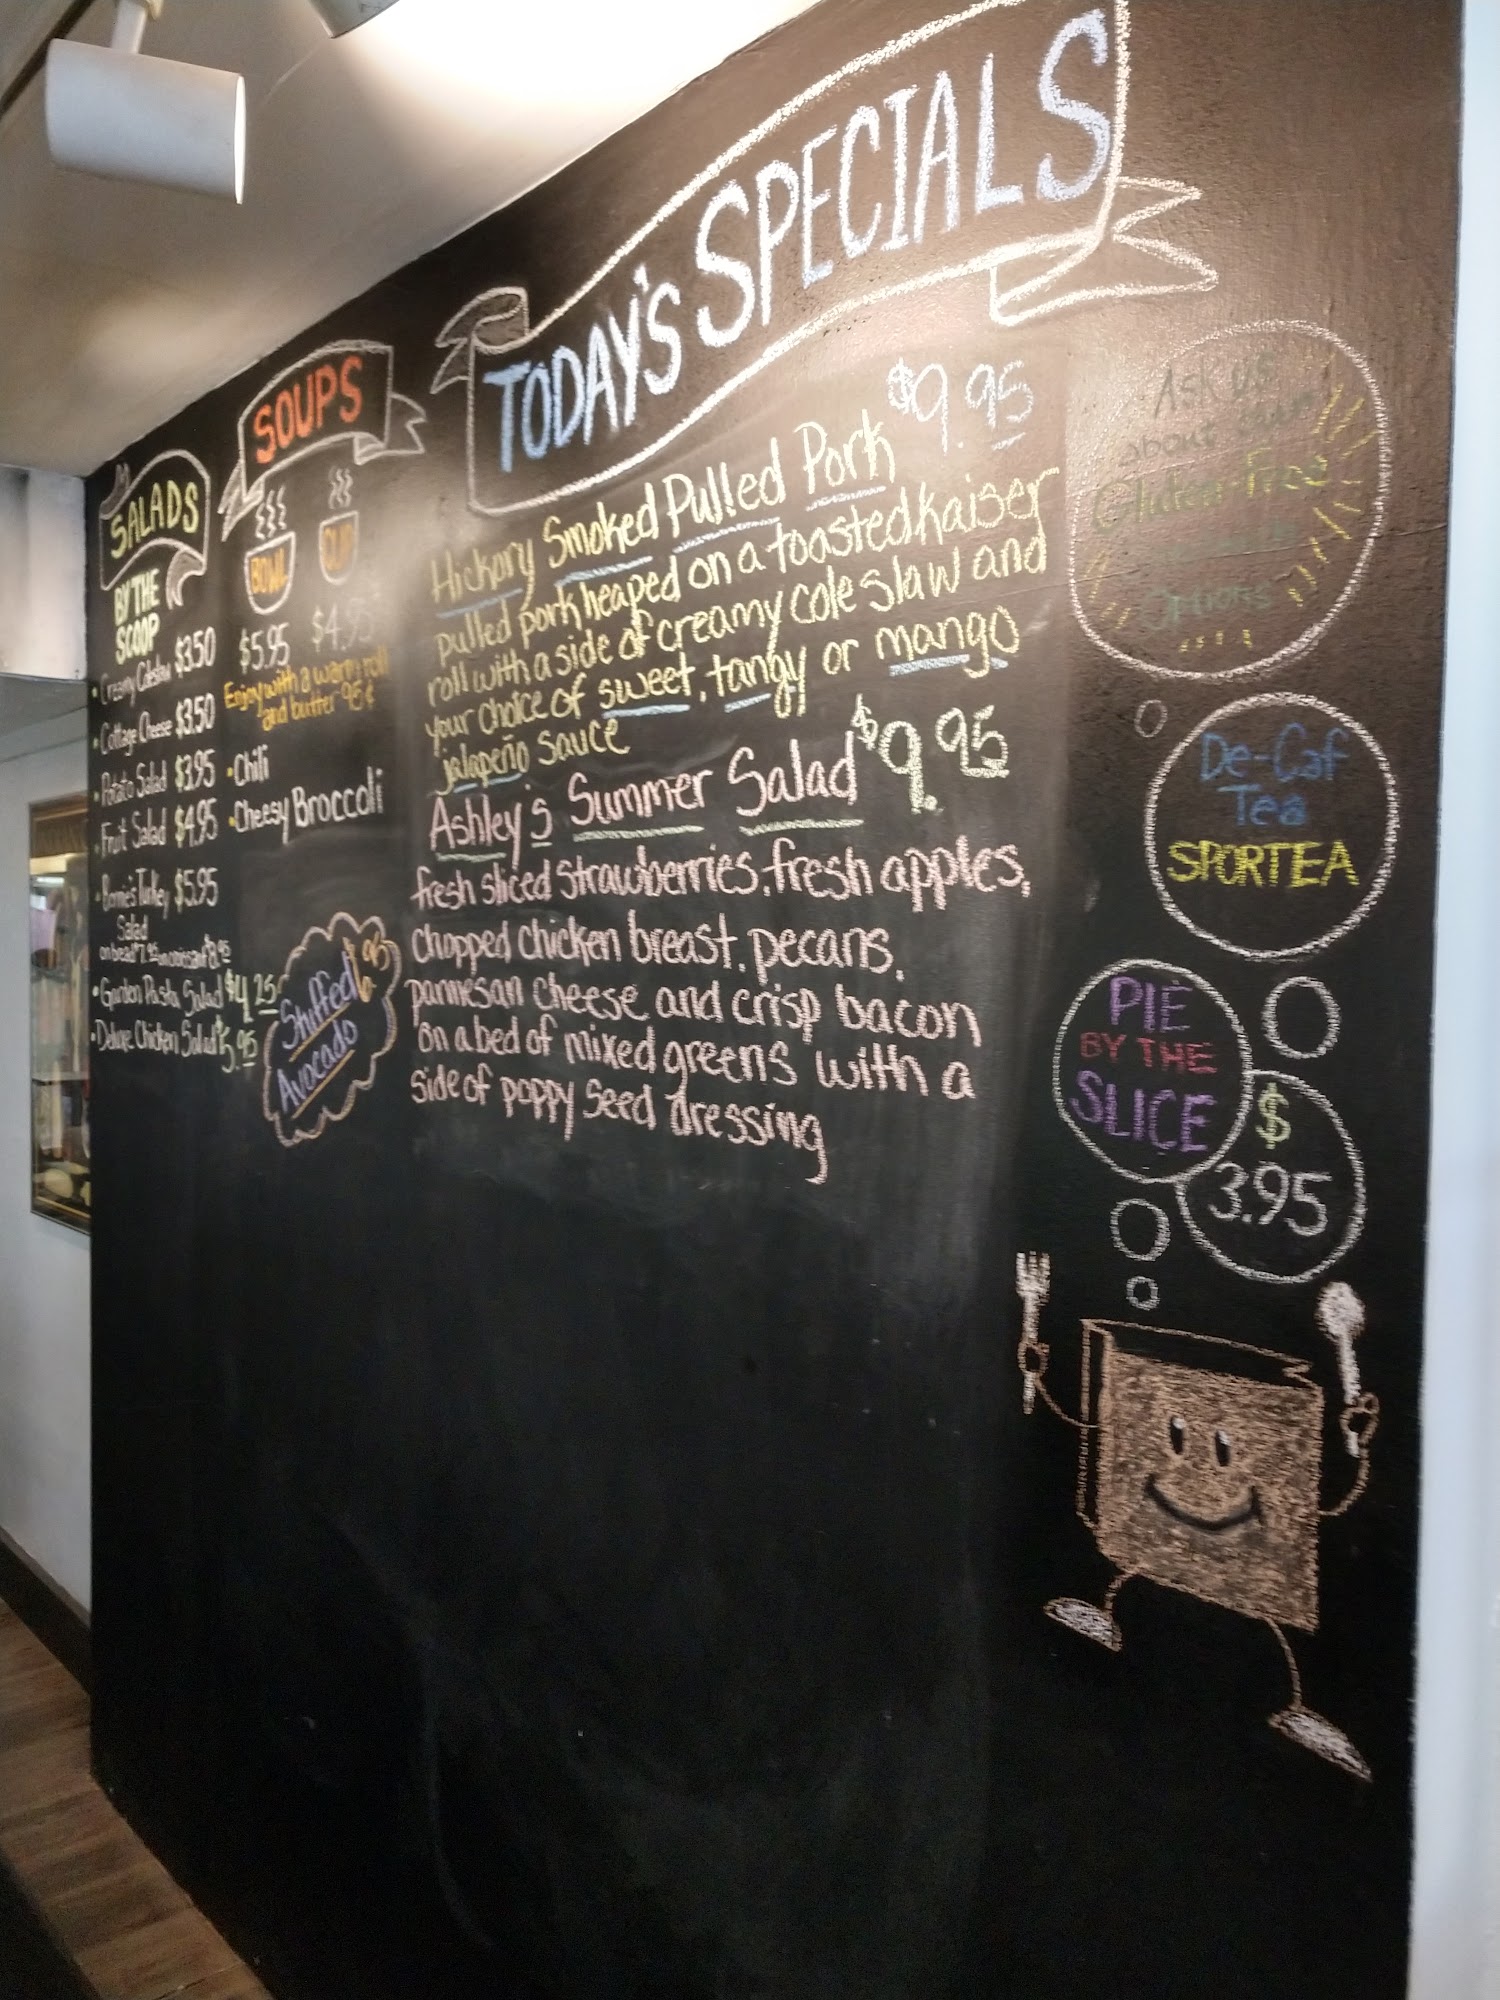 TODAY'S SPECIALS
SALADS
BY THE
SCOOP
• Creamy Coleslaw $3.50
• Cottage Cheese $3.50
• Potato Salad $3.95
• Fruit Salad $4.95
• Bernie's Turkey $5.95
Salad
on bread $7.95 on croissant $8.95
• Garden Pasta Salad $4.25
• Deluxe Chicken Salad $5.95
SOUPS
BOWL CUP
$5.95 $4.95
Enjoy with a warm roll
and butter 95¢
• Chili
• Cheesy Broccoli
Stuffed
Avocado
Hickory Smoked Pulled Pork $9.95
pulled pork heaped on a toasted Kaiser
roll with a side of creamy coleslaw and
your choice of sweet, tangy or mango
jalapeño sauce
Ashley's Summer Salad $9.95
fresh sliced strawberries, fresh apples,
chopped chicken breast, pecans,
parmesan cheese and crisp bacon
on a bed of mixed greens with a
side of poppy seed dressing
Ask us
about our
Gluten-Free
Options
De-Caf
Tea
SPORTEA
PIE
BY THE
SLICE
$
3.95